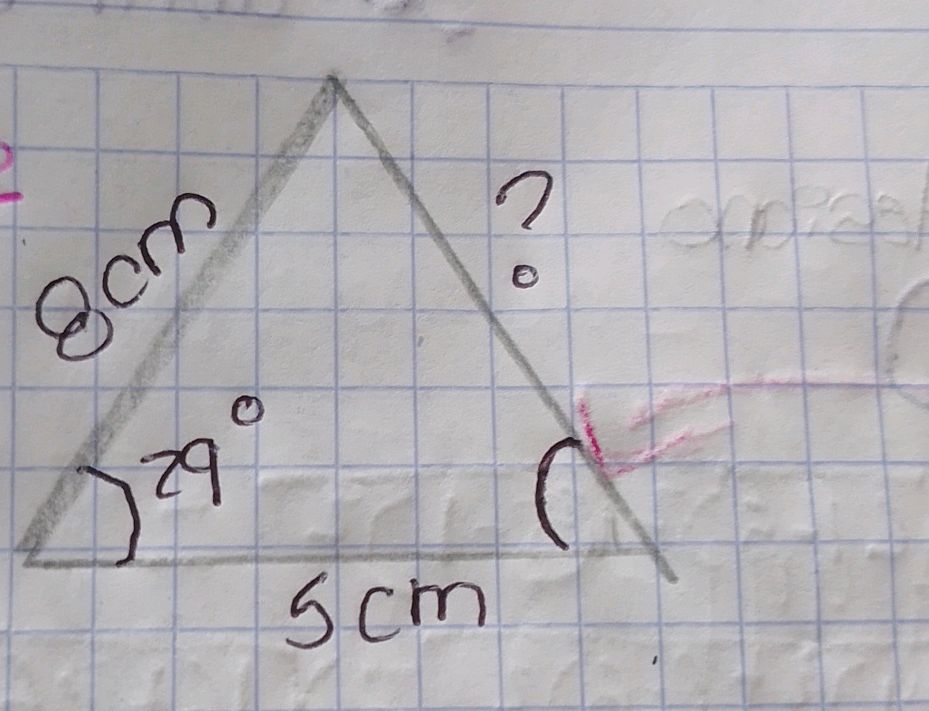 8cm
?
29°
5cm